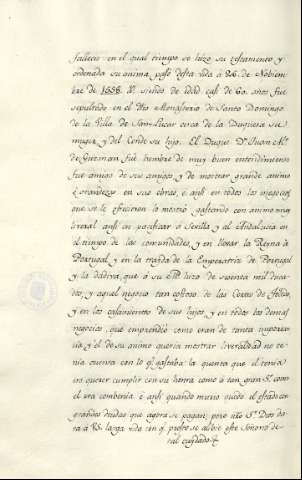 fallecio en el qual tiempo se hizo su testamento y
ordenada su anima pasó desta vida á 26. de Nobiem-
bre de 1558. as. siendo de idad casi de 60. años fue
sepultado en el Mo. Monasterio de Santo Domingo
de la Villa de San Lucar cerca de la Duquesa su
muger y del Conde su hijo. El Duque Dn. Juan Al.
de Guzman fué hombre de muy buen entendimiento
fue amigo de sus amigos y de mostrar grande animo
é grandeza en sus obras, é ansi en todos los negocios
que se le ofrecieron lo mostró gastando con animo muy
liveral ansi en pacificar á Sevilla y al Andalucia en
el tiempo de las comunidades, y en llevar la Reina á
Portugal, y en la traida de la Emperatriz de Portugal
y la dadiva que á su Mgd. hizo de sesenta mil duca-
dos, y aquel negocio tan costoso de las Cortes de Toledo,
y en los casamientos de sus hijos y en todos los demas
negocios que emprendió como eran de tanta importan-
cia y él de suimo queria mostrar liveralidad no te-
nia cuenta con lo q. gastaba la quenta que el tenia
era querer cumplir con su honra como á tan gran Sr. como
el era combenia é ansi quando murio quedó el estado con
grandes deudas que agora se pagan; pero ntro Sr. Dios dara
á VS. larga vida con q. pueda ser alibie este Señorio de
tal cuidado.